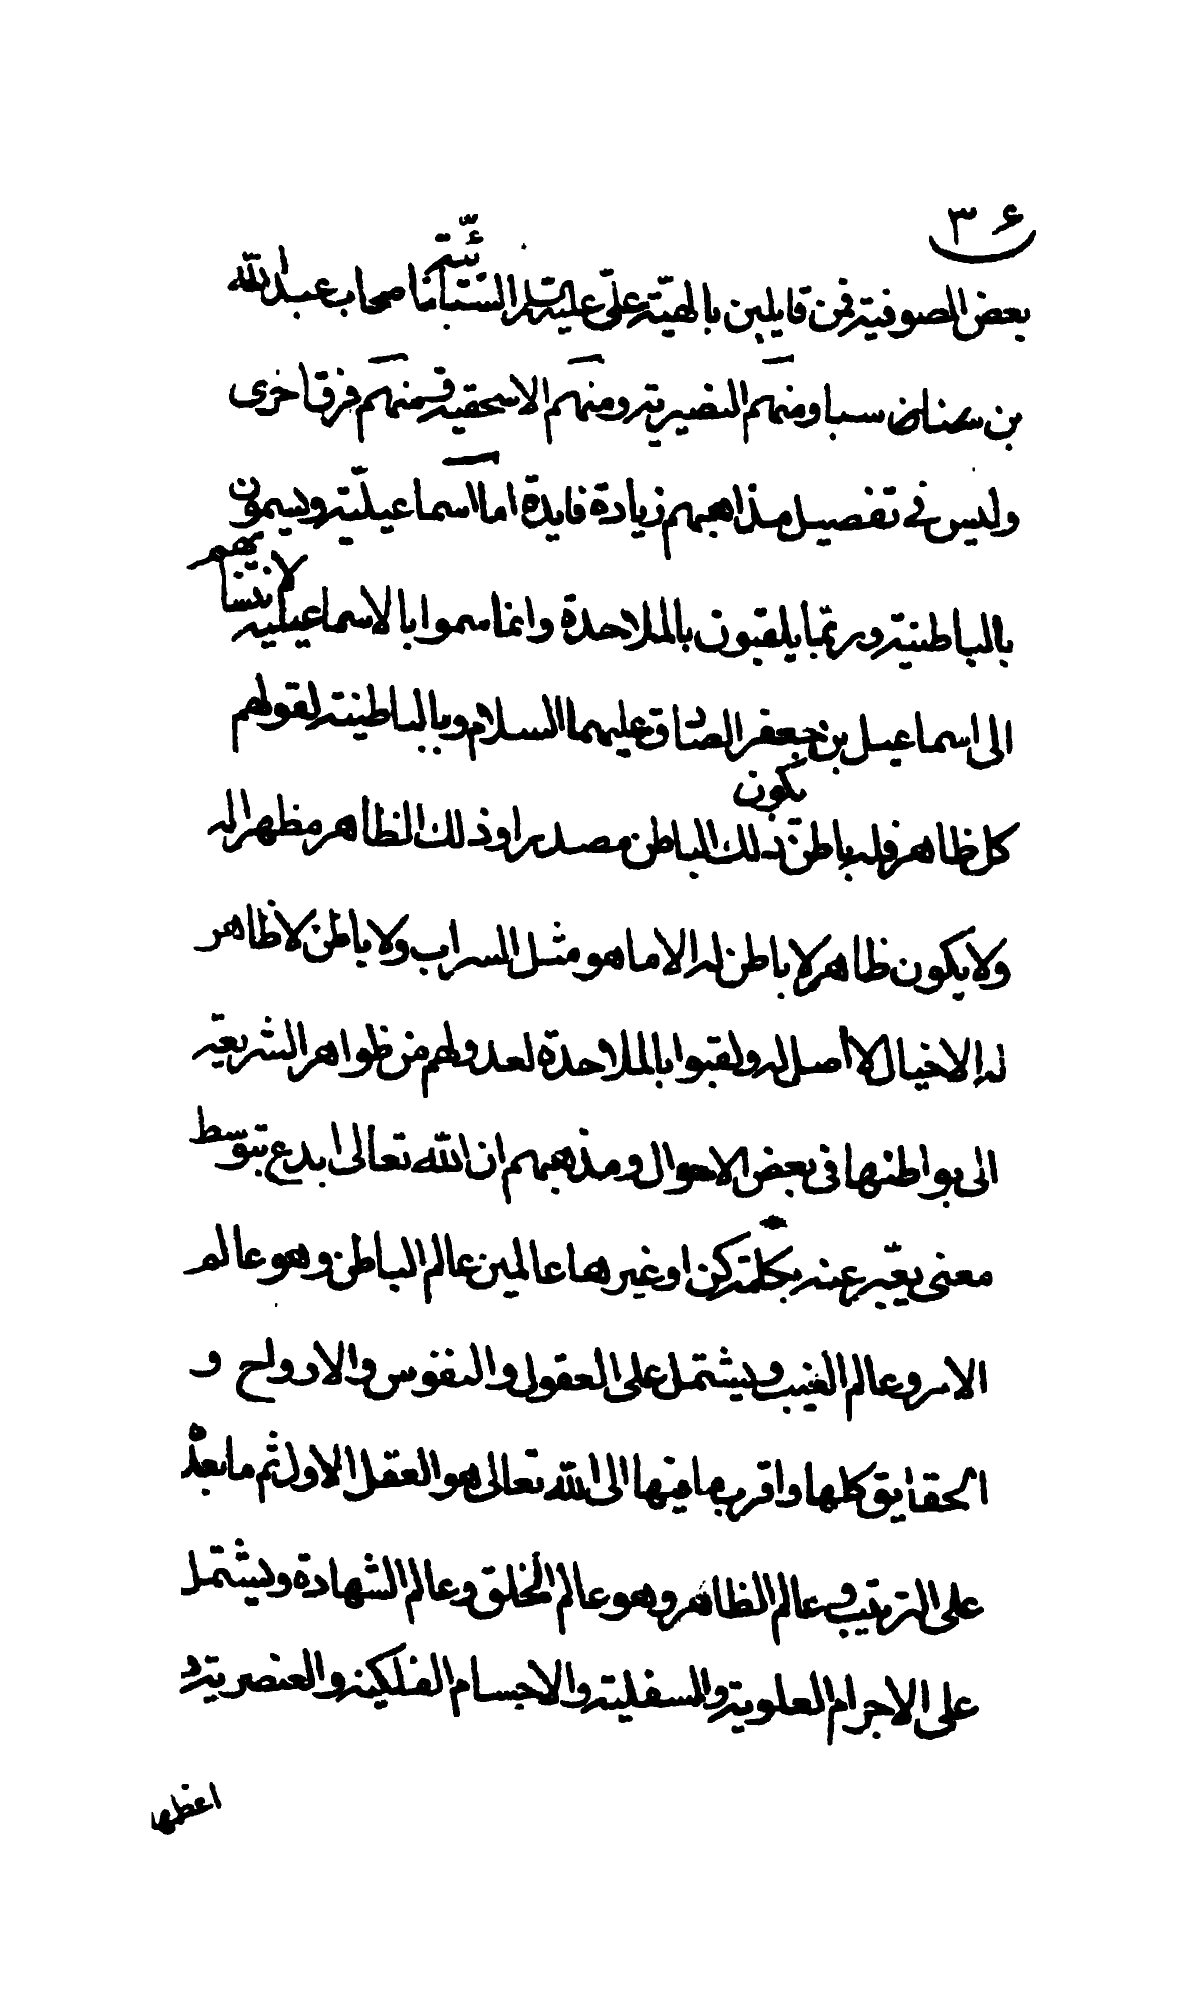 ٣٤
بعض الصوفية فمن قايلين بالهيّة علیّ عليه السبائيّة اصحاب عبد الله
بن سبا ومنهم النصيرية ومنهم الاسحقية ومنهم فرق اخرى
وليس في تفصيل مذاهبهم زيادة فايدة اما الاسماعيليّة ويسمون
بالباطنية وربّما يلقبون بالملاحدة وانما سموا بالاسماعيلية لانتسابهم
الى اسماعيل بن جعفر الصادق عليهما السلام وبالباطنية لقولهم
كل ظاهر فله باطن يكون ذلك الباطن مصدرا وذلك الظاهر مظهرا له
ولا يكون ظاهر لا باطن له الا ما هو مثل السراب ولا باطن لا ظاهر
له الا خيال لا اصل له ولقبوا بالملاحدة لعدولهم من ظواهر الشريعة
الى بواطنها في بعض الاحوال ومذهبهم ان الله تعالى ابدع بتوسط
معنى يعبّر عنه بكلمة كن او غيرها عالمين عالم الباطن وهو عالم
الامر وعالم الغيب ويشتمل على العقول والنفوس والارواح و
الحقايق كلها واقرب ما فيها الى الله تعالى هو العقل الاول ثم ما بعده
على الترتيب وعالم الظاهر وهو عالم الخلق وعالم الشهادة ويشتمل
على الاجرام العلوية والسفلية والاجسام الفلكية والعنصرية و
اعظمها